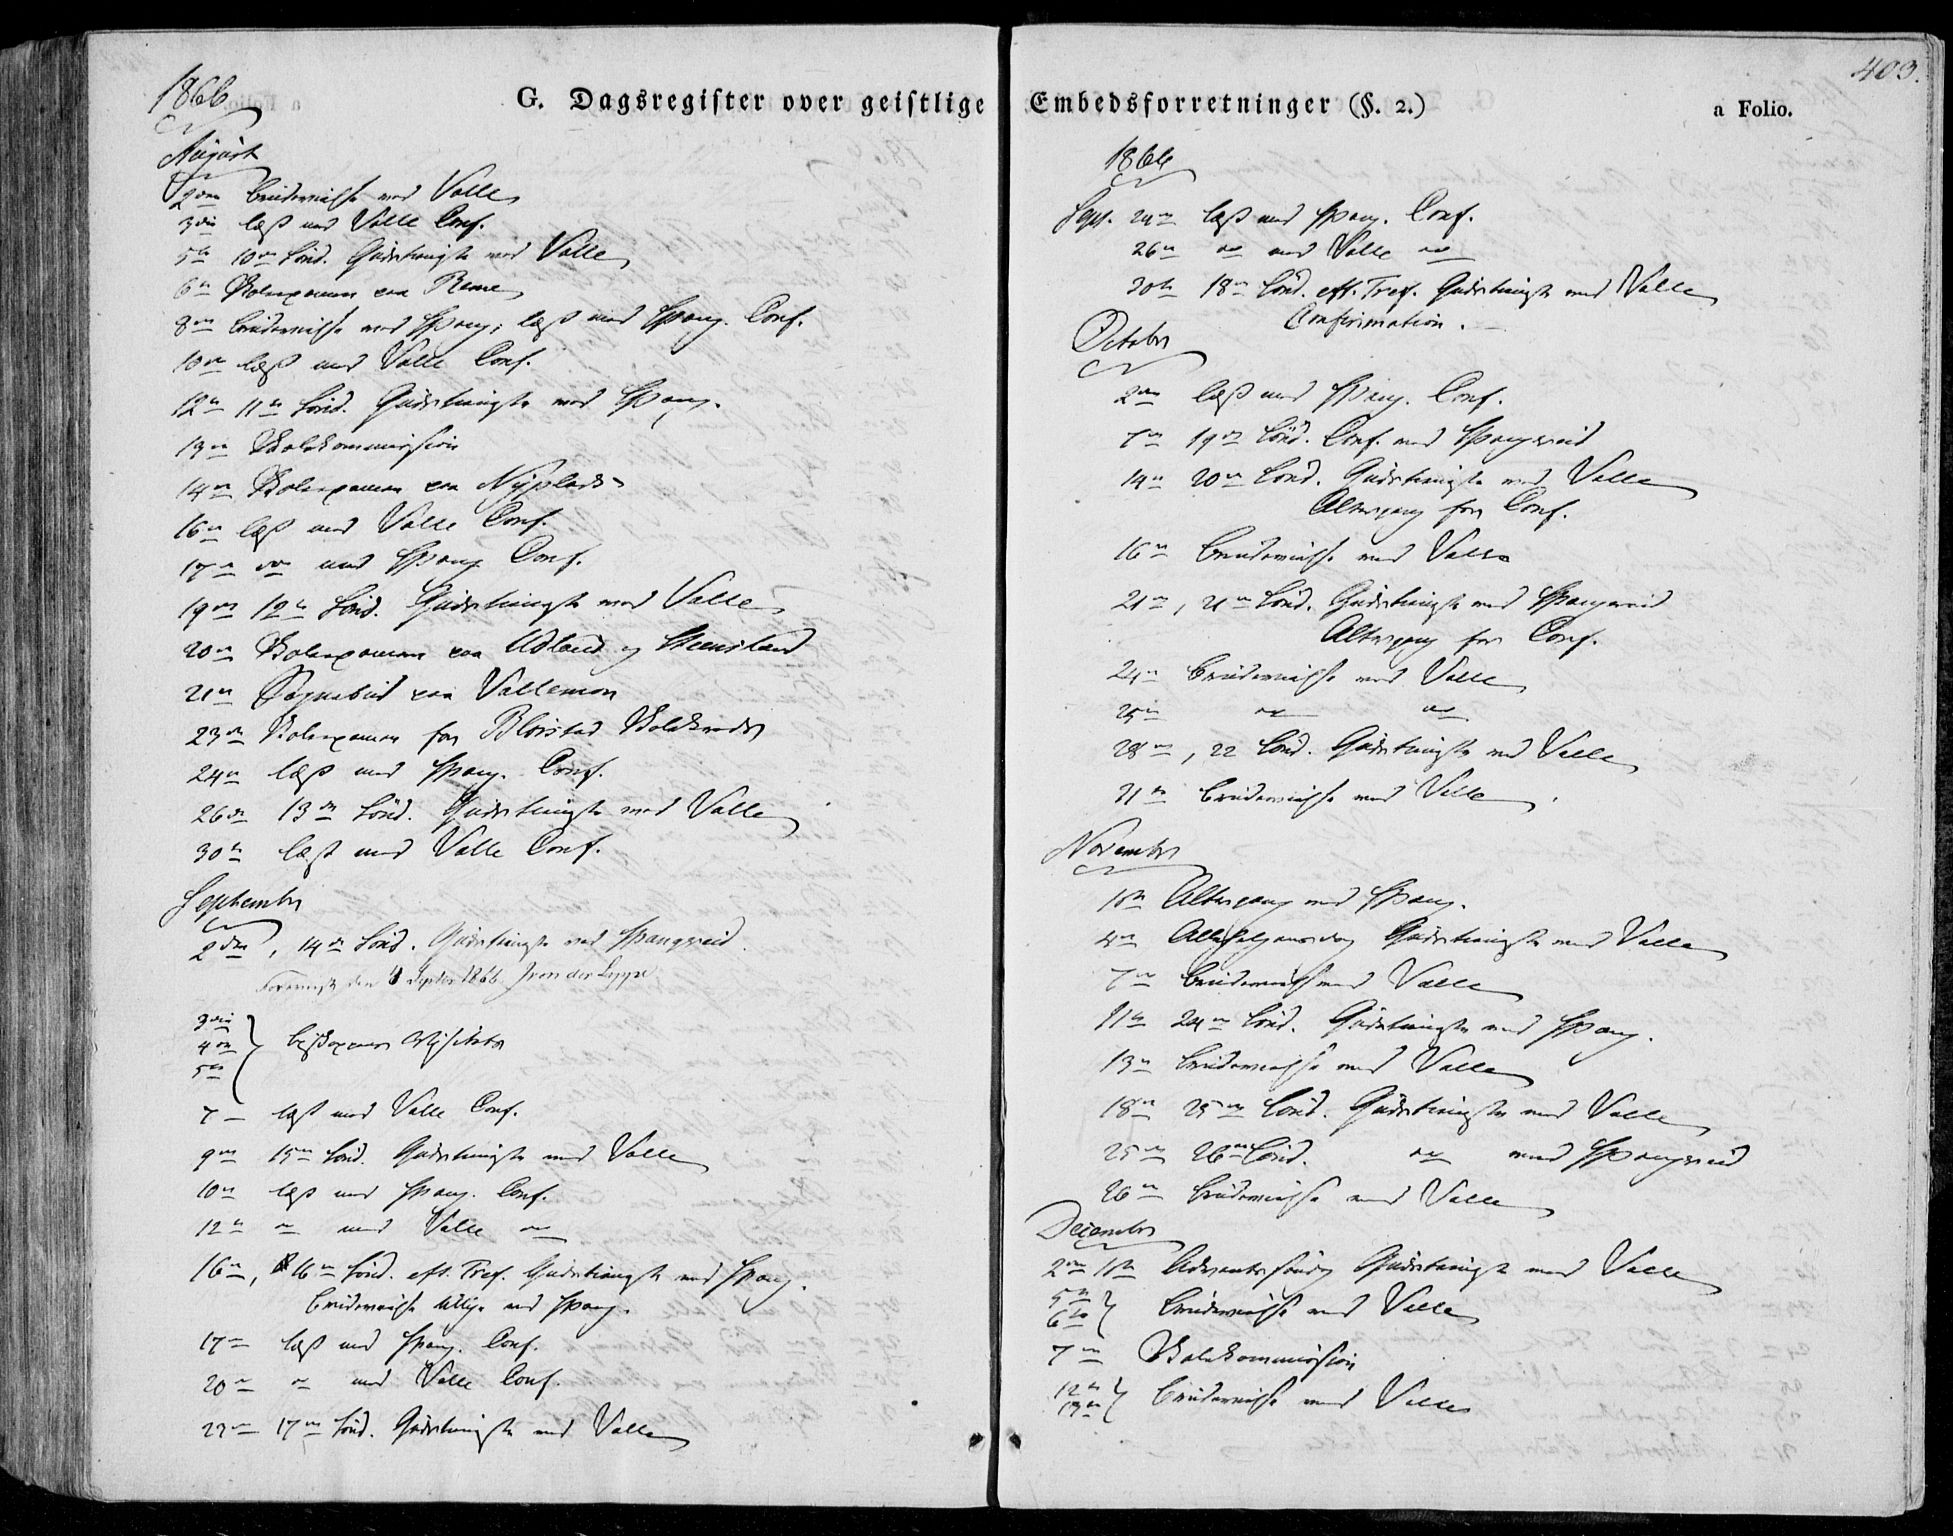 1866
G. Dagsregister over geistlige
August
2den Brudevielse ved Valle
3die læst med Valle Conf.
5te 10de Sönd. Gudstieneste ved Valle
6te Skolexamen paa Rame
8de Brudevielse ved Spang; læst med Spang. Conf.
10de læst med Valle Conf.
12te 11te Sönd. Gudstieneste ved Spang.
13de Skolekommission
14de Skolexamen paa Nyplads
16de læst med Valle Conf.
17de do med Spang Conf.
19de 12te Sönd. Gudstieneste ved Valle
20de Skolexamen paa Udland og Steensland
21de Sognebud paa Vallemon
23de Skolexamen for Bloistad Skolekreds
24de læst med Spang. Conf.
26de 13de Sönd. Gudstieneste ved Valle
30te læst med Valle Conf.
September
2den, 14de Sönd. Gudstieneste ved Spangereid.
Forevist den Septbr 1866. J von der Lippe
3die
4de Biskopens Visitats
5te
7 læst med Valle Conf.
9de 15de Sönd. Gudstieneste ved Valle
10de læst med Spang. Conf.
12te do med Valle do
16de, 16de Sönd. eft. Tref. Gudstieneste ved Spang.
Brudevielse tillige ved Spang.
17de læst med Spang. Conf.
20de do med Valle Conf.
23de 17de Sönd. Gudstieneste ved Valle
403.
Embedsforretninger (§. 2.)
a Folio.
1866
Sept. 24de læst med Spang. Conf.
26de do med Valle do
30te 18de Sönd. eft. Tref. Gudstieneste ved Valle
Confirmation.
October
2den læst med Spang. Conf.
7de 19de Sönd. Conf. ved Spangereid
14de 20de Sönd. Gudstieneste ved Valle
Altergang for Conf.
16de Brudevielse ved Valle
21de, 21de Sönd. Gudstieneste ved Spangereid
Altergang for Conf.
24de Brudevielse ved Valle
25de do do
28de, 22 Sönd. Gudstieneste ved Valle
31te Brudevielse ved Valle
November
1ste Altergang ved Spang.
4de Allehelgensdag Gudstieneste ved Valle
7de Brudevielse ved Valle
11te 24de Sönd. Gudstieneste ved Spang.
13de Brudevielse ved Valle
18de 25de Sönd. Gudstieneste ved Valle
25de 26de Sönd. do ved Spangereid
26de Brudevielse ved Valle
December
2den 1ste Adventssöndag Gudstieneste ved Valle
5te
6te Brudevielse ved Valle
7de Skolekommission
12te
13de Brudevielse ved Valle